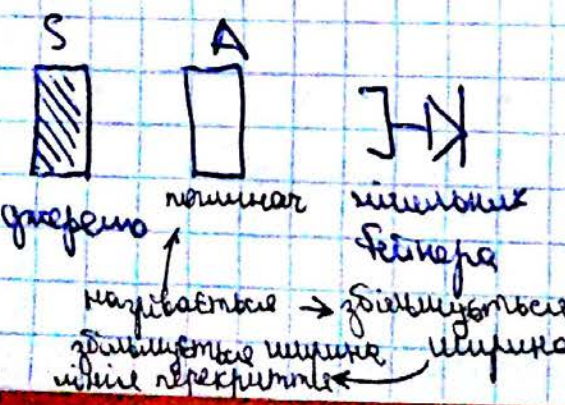 S A
джерело поглинач лічильник
Гейгера
нагрівається → збільшується
збільшується ширина ширина
лінія перекриття